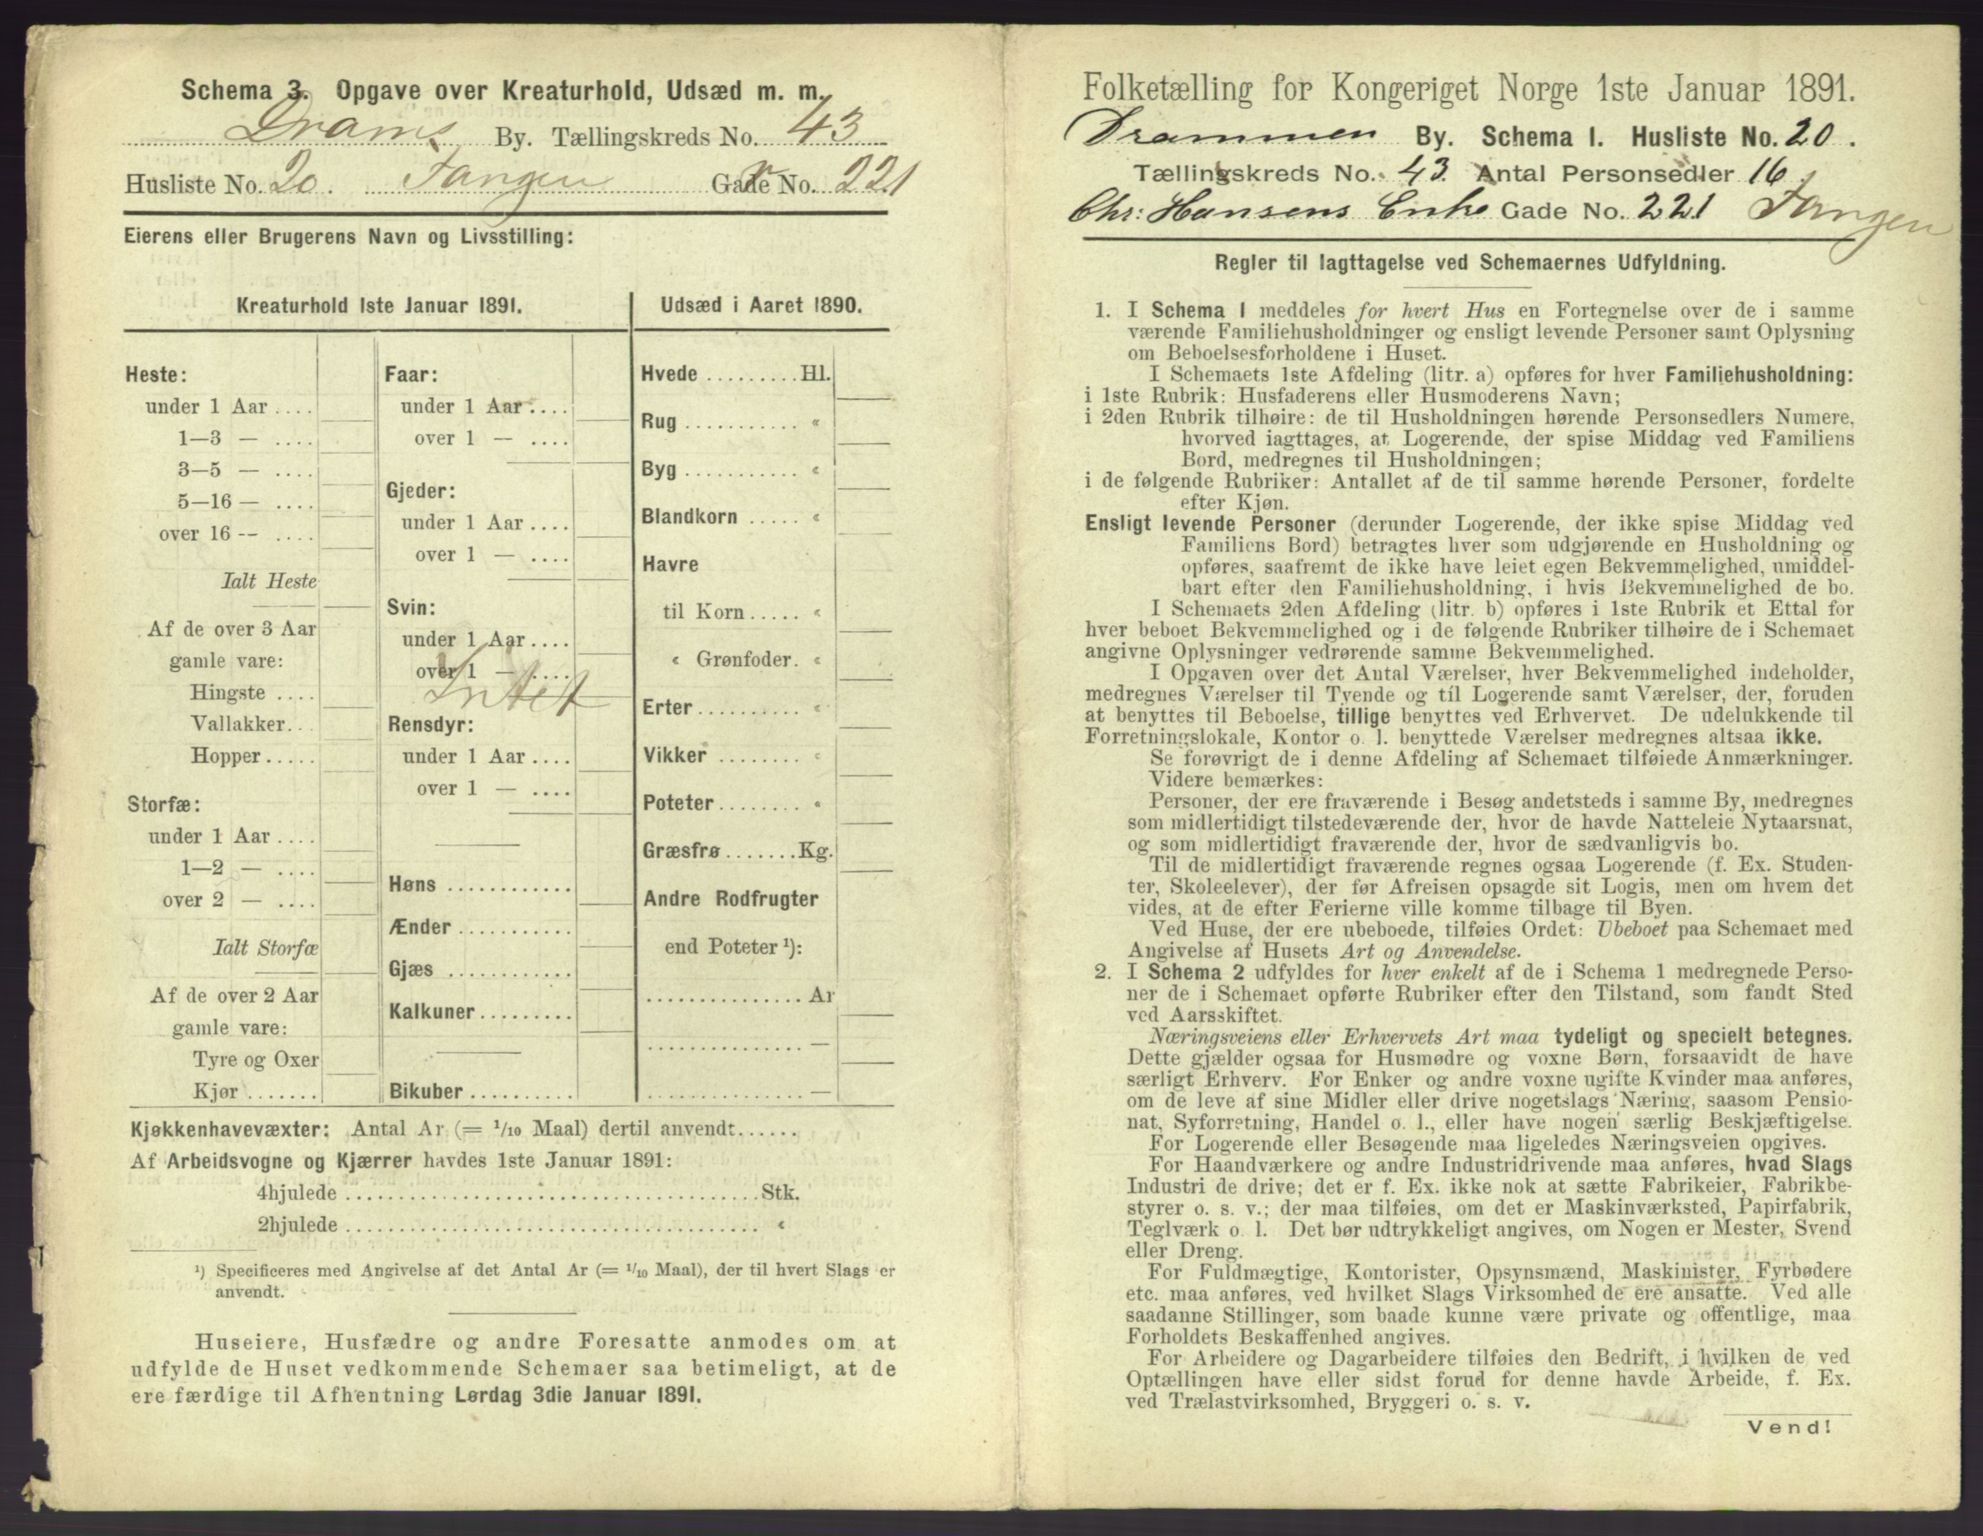 Schema 3. Opgave over Kreaturhold, Udsæd m. m.
Drams By. Tællingskreds No. 43
Husliste No. 20. Tangen Gade No. 221
Eierens eller Brugerens Navn og Livsstilling:
Kreaturhold 1ste Januar 1891.
Heste:
under 1 Aar ....
1—3 — ....
3—5 — ....
5—16 — ....
over 16 -- ....
Ialt Heste
Af de over 3 Aar
gamle vare:
Hingste ....
Vallakker...
Hopper.....
Storfæ:
under 1 Aar ....
1—2 — ....
over 2 — ....
Ialt Storfæ
Af de over 2 Aar
gamle vare:
Tyre og Oxer
Kjør .......
Faar:
under 1 Aar ....
over 1 — ....
Gjeder:
under 1 Aar ....
over 1 — ....
Svin:
under 1 Aar ....
over 1 — ....
Intet
Rensdyr:
under 1 Aar ....
over 1 — ....
Høns ............
Ænder ...........
Gjæs ............
Kalkuner.........
Bikuber ..........
Udsæd i Aaret 1890.
Hvede ......... Hl.
Rug ........... «
Byg ........... «
Blandkorn ..... «
Havre
til Korn ..... «
« Grønfoder. «
Erter .......... «
Vikker ........ «
Poteter ........ «
Græsfrø ....... Kg.
Andre Rodfrugter
end Poteter ¹):
............... Ar
............... —
............... —
Kjøkkenhavevæxter: Antal Ar (= 1/10 Maal) dertil anvendt......
Af Arbeidsvogne og Kjærrer havdes 1ste Januar 1891:
4hjulede ...................................... Stk.
2hjulede ...................................... «
¹) Specificeres med Angivelse af det Antal Ar (= 1/10 Maal), der til hvert Slags er
anvendt.
Huseiere, Husfædre og andre Foresatte anmodes om at
udfylde de Huset vedkommende Schemaer saa betimeligt, at de
ere færdige til Afhentning Lørdag 3die Januar 1891.
Folketælling for Kongeriget Norge 1ste Januar 1891.
Drammen By. Schema 1. Husliste No. 20.
Tællingskreds No. 43. Antal Personsedler 16
Chr: Hansens Enke Gade No. 221 Tangen
Regler til Iagttagelse ved Schemaernes Udfyldning.
1. I Schema 1 meddeles for hvert Hus en Fortegnelse over de i samme
værende Familiehusholdninger og ensligt levende Personer samt Oplysning
om Beboelsesforholdene i Huset.
I Schemaets 1ste Afdeling (litr. a) opføres for hver Familiehusholdning:
i 1ste Rubrik: Husfaderens eller Husmoderens Navn;
i 2den Rubrik tilhøire: de til Husholdningen hørende Personsedlers Numere,
hvorved iagttages, at Logerende, der spise Middag ved Familiens
Bord, medregnes til Husholdningen;
i de følgende Rubriker: Antallet af de til samme hørende Personer, fordelte
efter Kjøn.
Ensligt levende Personer (derunder Logerende, der ikke spise Middag ved
Familiens Bord) betragtes hver som udgjørende en Husholdning og
opføres, saafremt de ikke have leiet egen Bekvemmelighed, umiddel-
bart efter den Familiehusholdning, i hvis Bekvemmelighed de bo.
I Schemaets 2den Afdeling (litr. b) opføres i 1ste Rubrik et Ettal for
hver beboet Bekvemmelighed og i de følgende Rubriker tilhøire de i Schemaet
angivne Oplysninger vedrørende samme Bekvemmelighed.
I Opgaven over det Antal Værelser, hver Bekvemmelighed indeholder,
medregnes Værelser til Tyende og til Logerende samt Værelser, der, foruden
at benyttes til Beboelse, tillige benyttes ved Erhvervet. De udelukkende til
Forretningslokale, Kontor o. l. benyttede Værelser medregnes altsaa ikke.
Se forøvrigt de i denne Afdeling af Schemaet tilføiede Anmærkninger.
Videre bemærkes:
Personer, der ere fraværende i Besøg andetsteds i samme By, medregnes
som midlertidigt tilstedeværende der, hvor de havde Natteleie Nytaarsnat,
og som midlertidigt fraværende der, hvor de sædvanligvis bo.
Til de midlertidigt fraværende regnes ogsaa Logerende (f. Ex. Studen-
ter, Skoleelever), der før Afreisen opsagde sit Logis, men om hvem det
vides, at de efter Ferierne ville komme tilbage til Byen.
Ved Huse, der ere ubeboede, tilføies Ordet: Ubeboet paa Schemaet med
Angivelse af Husets Art og Anvendelse.
2. I Schema 2 udfyldes for hver enkelt af de i Schema 1 medregnede Perso-
ner de i Schemaet opførte Rubriker efter den Tilstand, som fandt Sted
ved Aarsskiftet.
Næringsveiens eller Erhvervets Art maa tydeligt og specielt betegnes.
Dette gjælder ogsaa for Husmødre og voxne Børn, forsaavidt de have
særligt Erhverv. For Enker og andre voxne ugifte Kvinder maa anføres,
om de leve af sine Midler eller drive nogetslags Næring, saasom Pensio-
nat, Syforretning, Handel o. l., eller have nogen særlig Beskjæftigelse.
For Logerende eller Besøgende maa ligeledes Næringsveien opgives.
For Haandværkere og andre Industridrivende maa anføres, hvad Slags
Industri de drive; det er f. Ex. ikke nok at sætte Fabrikeier, Fabrikbe-
styrer o. s. v.; der maa tilføies, om det er Maskinværksted, Papirfabrik,
Teglværk o. l. Det bør udtrykkeligt angives, om Nogen er Mester, Svend
eller Dreng.
For Fuldmægtige, Kontorister, Opsynsmænd, Maskinister, Fyrbødere
etc. maa anføres, ved hvilket Slags Virksomhed de ere ansatte. Ved alle
saadanne Stillinger, som baade kunne være private og offentlige, maa
Forholdets Beskaffenhed angives.
For Arbeidere og Dagarbeidere tilføies den Bedrift, i hvilken de ved
Optællingen have eller sidst forud for denne havde Arbeide, f. Ex.
ved Trælastvirksomhed, Bryggeri o. s. v.
Vend!